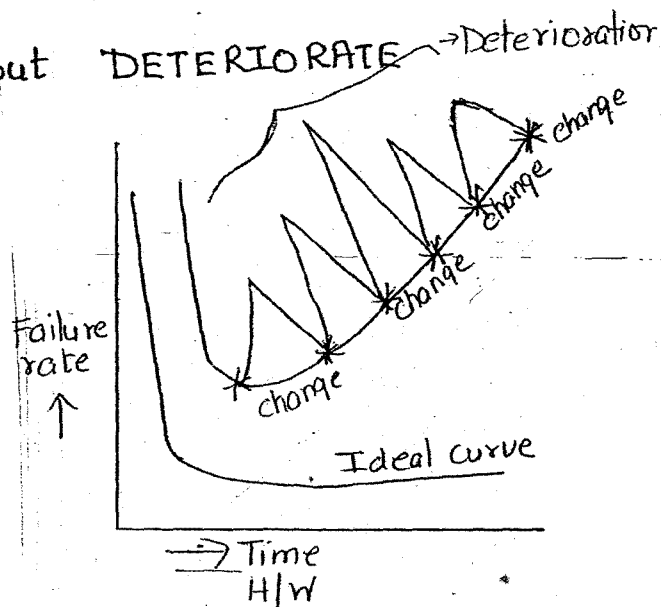 out DETERIORATE
→Deterioration
change
change
change
change
Failure
rate
↑
Ideal curve
→ Time
H/W